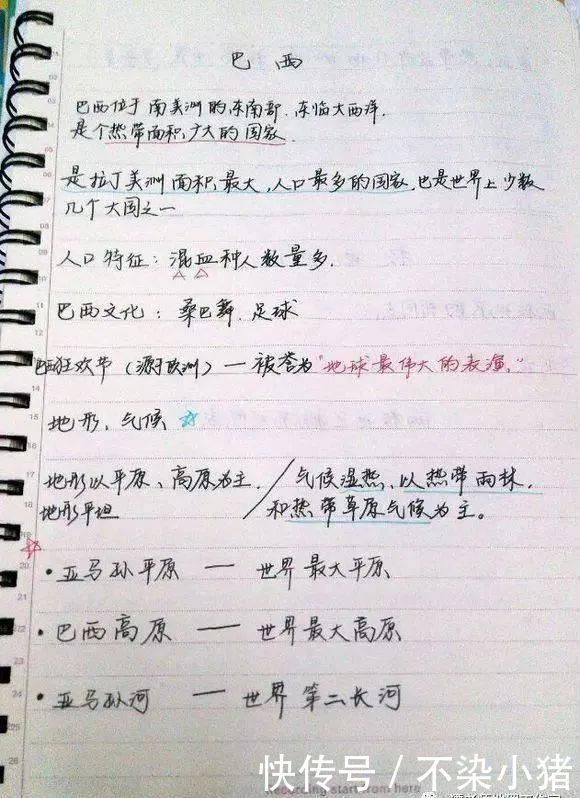 巴西
巴西位于南美洲的东南部,东临大西洋.
是个热带面积广大的国家.
是拉丁美洲面积最大,人口最多的国家,也是世界上少数
几个大国之一
人口特征:混血种人数量多.
巴西文化:桑巴舞.足球
巴西狂欢节(源于欧洲)—被誉为"地球最伟大的表演."
地形、气候 ☆
地形以平原、高原为主./气候湿热,以热带雨林.
地形平坦/和热带草原气候为主。
☆
·亚马孙平原 — 世界最大平原
·巴西高原 — 世界最大高原
·亚马孙河 — 世界第二长河
快传号/不染小猪
Recording start from here